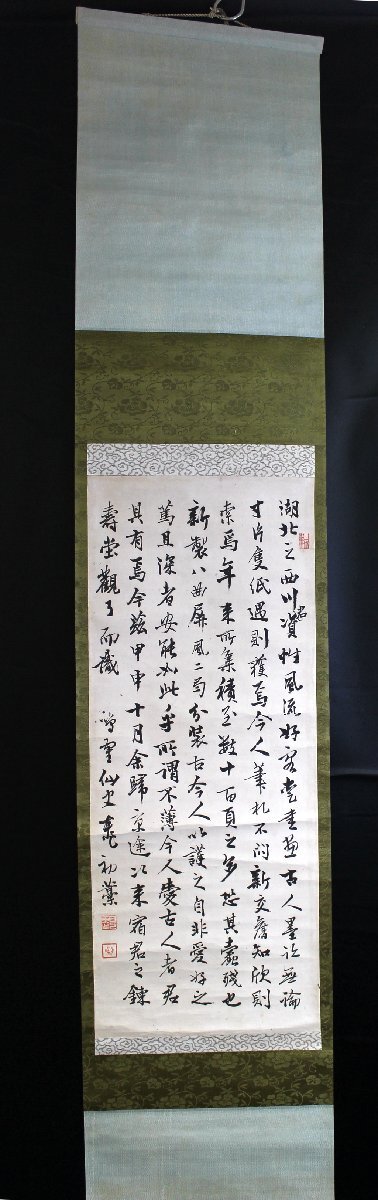 湖北之西川君資性風流好客嗜書画古人墨迹無論
寸片隻紙遇則獲焉今人筆札不問新交舊知欣則
索焉年来所集積至數十百頁之多恐其蠹残也
新製八曲屏風二局分装古今人以護之自非愛好之
篤且深者安能如此乎所謂不薄今人愛古人者君
具有焉今茲甲申十月余歸京途以来宿君之錬
壽堂觀了而識 雪仙史 初葉